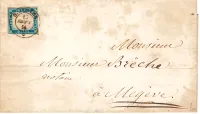 Monsieur
Monsieur Brèche
notaire
à Megève